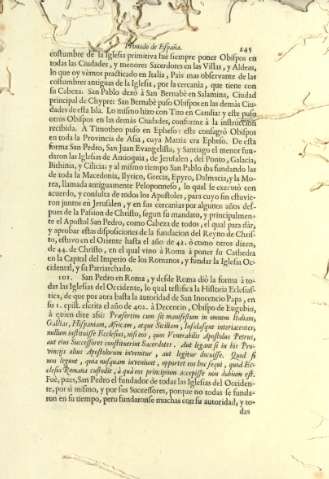 Primado de España. 245
costumbre de la Iglesia primitiva fuè siempre poner Obispos en
todas las Ciudades, y menores Sacerdotes en las Villas, y Aldeas,
lo que oy vèmos practicado en Italia, Pais mas observante de las
costumbres antiguas de la Iglesia, por la cercania, que tiene con
su Cabeza. San Pablo dexò à San Bernabè en Salamina, Ciudad
principal de Chypre: San Bernabè puso Obispos en las demàs Ciu-
dades de esta Isla. Lo mismo hizo con Tito en Candia: y este puso
otros Obispos en las demàs Ciudades, conforme à la instruccion
recibida. A Timotheo puso en Epheso: este consagrò Obispos
en toda la Provincia de Asia, cuya Matriz era Epheso. De esta
forma San Pedro, San Juan Evangelista, y Santiago el menor fun-
daron las Iglesias de Antioquia, de Jerusalen, del Ponto, Galacia,
Bithinia, y Cilicia; y al mismo tiempo San Pablo iba fundando las
de toda la Macedonia, Ilyrico, Grecia, Epyro, Dalmacia, y la Mo-
rea, llamada antiguamente Peloponneso, lo qual se executò con
acuerdo, y consulta de todos los Apostoles, para cuyo fin estuvie-
ron juntos en Jerusalen, y en sus cercanias por algunos años des-
pues de la Passion de Christo, segun su mandato, y principalmen-
te el Apostol San Pedro, como Cabeza de todos, el qual para dàr,
y aprobar estas disposiciones de la fundacion del Reyno de Chris-
to, estuvo en el Oriente hasta el año de 42. ò como otros dicen,
de 44. de Christo, en el qual vino à Roma à poner su Cathedra
en la Capital del Imperio de los Romanos, y fundar la Iglesia Oc-
cidental, y su Patriarchado.
101. San Pedro en Roma, y desde Roma diò la forma à to-
das las Iglesias del Occidente, lo qual testifica la Historia Eclesias-
tica, de que por aora basta la autoridad de San Inocencio Papa, en
su 1. epist. escrita el año de 402. à Decencio, Obispo de Eugubio,
à quien dice assi: Præsertim cum sit manifestum in omnem Italiam,
Gallias, Hispaniam, Africam, atque Siciliam, Insulasque interiacentes,
nullum instituisse Ecclesias, nisi eos, quos Venerabilis Apostolus Petrus,
aut eius Successores constituerint Sacerdotes. Aut legant si in his Pro-
vincijs alius Apostolorum invenitur, aut legitur docuisse. Quod si
non legunt, quia nusquam inveniunt, oportet eos hoc sequi, quod Ec-
clesia Romana custodit, à qua eos principium accepisse non dubium est.
Fuè, pues, San Pedro el fundador de todas las Iglesias del Occiden-
te, por sì mismo, y por sus Successores, porque no todas se funda-
ron en su tiempo, pero fundaronse muchas con su autoridad, y to-
das